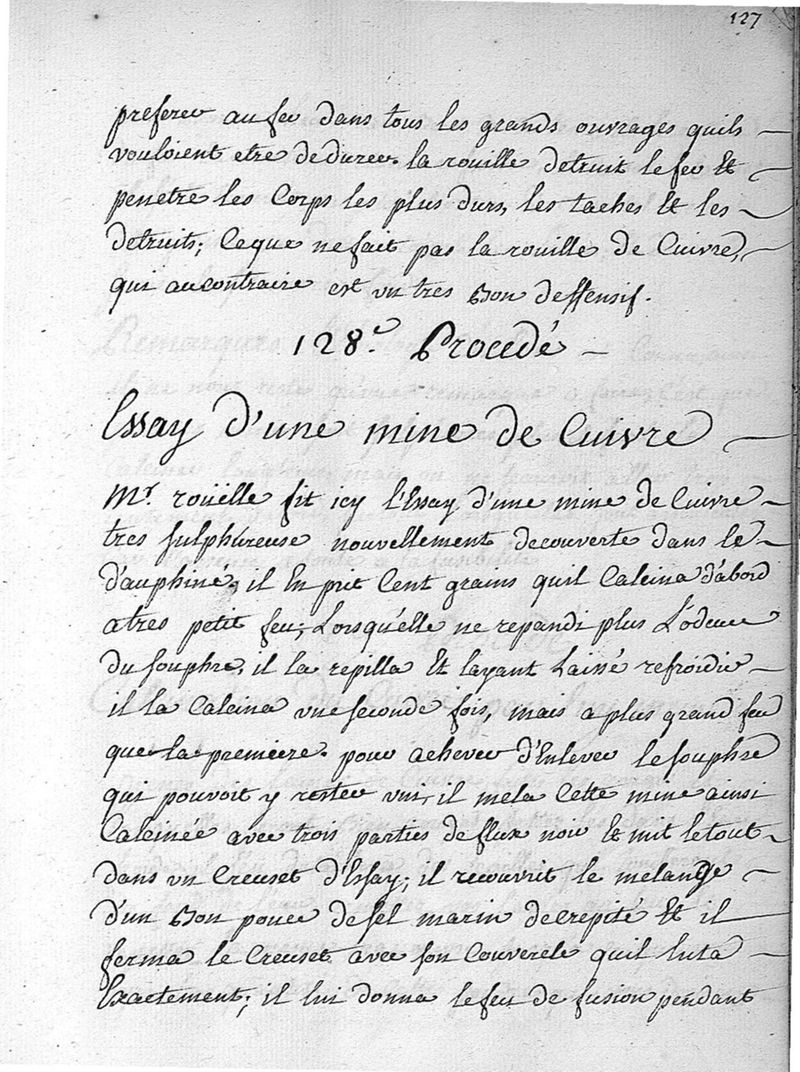 127
preferer au fer dans tous les grands ouvrages quils
vouloient etre de durée. la rouille detruit le fer et
penetre les Corps les plus durs, les taches et les
detruits; Ceque nefait pas la rouille de Cuivre,
qui aucontraire est un tres Bon deffensif.
128.e Procedé
Essay d'une mine de Cuivre
Mr. roüelle fit icy l'Essay d'une mine de Cuivre
tres sulphureuse nouvellement decouverte dans le
d'auphiné, il En prit Cent grains quil Calcina d'abord
atres petit feu; Lorsqu'elle ne repandi plus L'odeur
du souphre, il la repilla Et layant Laissé refroidir
il la Calcina une seconde fois, mais a plus grand feu
que la premiere. pour achever d'Enlever le souphre
qui pouvoit y rester uni, il mela Cette mine ainsi
Calcinée avec trois parties de flux noir et mit le tout
dans un Creuset d'Essay; il recouvrit le melange
d'un Bon pouce de sel marin decrepité Et il
ferma le Creuset avec son Couvercle quil luta
Exactement; il lui donna le feu de fusion pendant